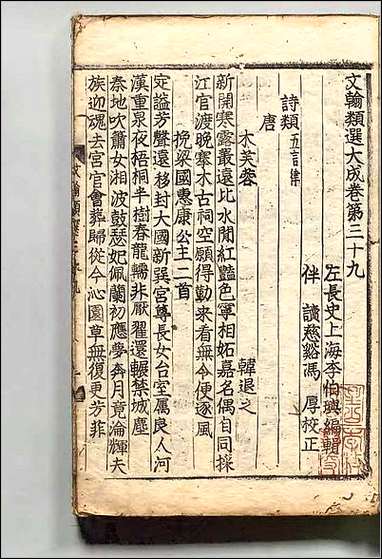 文翰類選大成卷第三十九
左長史上海李伯璵編輯
伴讀慈谿馮厚校正
詩類 五言律
唐
木芙蓉 韓退之
新開寒露叢遠比水間紅豔色寧相妬嘉名偶自同採
江官渡晚搴木古祠空願得勤來看無令便逐風
挽梁國惠康公主二首
定謚芳聲遠移封大國新巽宮尊長女台室屬良人河
漢重泉夜梧桐半樹春龍輴非厭翟還輾禁城塵
秦地吹簫女湘波鼓瑟妃佩蘭初應夢奔月竟淪輝夫
族迎魂去宮官會葬歸從今沁園草無復更芳菲